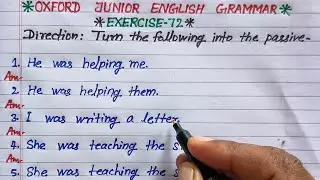 *OXFORD JUNIOR ENGLISH GRAMMAR*
*EXERCISE-72*
Direction: Turn the following into the passive-
1. He was helping me.
Ans-
2. He was helping them.
Ans-
3. I was writing a letter
Ans-
4. She was teaching the s
Ans-
5. She was teaching the s